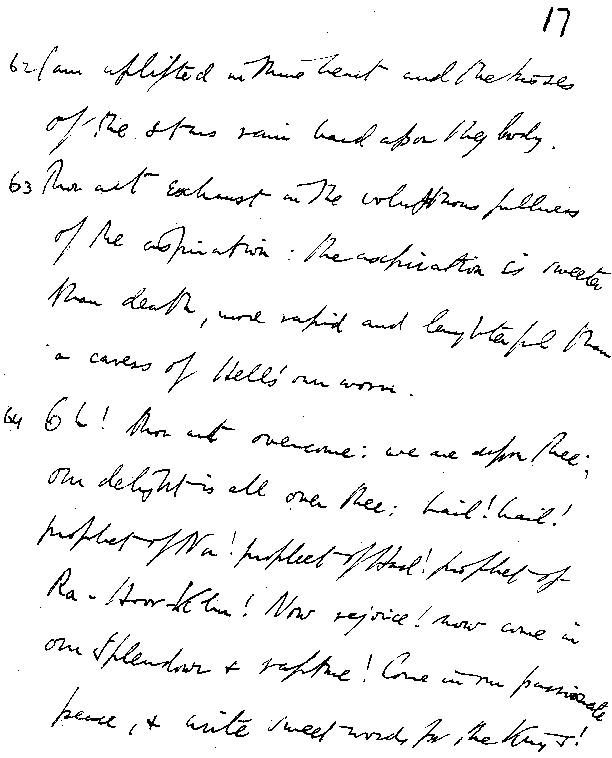 17
62 I am uplifted in thine heart and the kisses
of the stars rain hard upon thy body.
63 Thou art exhaust in the voluptuous fullness
of the inspiration: the expiration is sweeter
than death, more rapid and laughterful than
a caress of Hell's own worm.
64 Oh! thou art overcome: we are upon thee;
our delight is all over thee: hail! hail!
prophet of Nu! prophet of Had! prophet of
Ra-Hoor-Khu! Now rejoice! now come in
our splendour & rapture! Come in our passionate
peace, & write sweet words for the Kings!